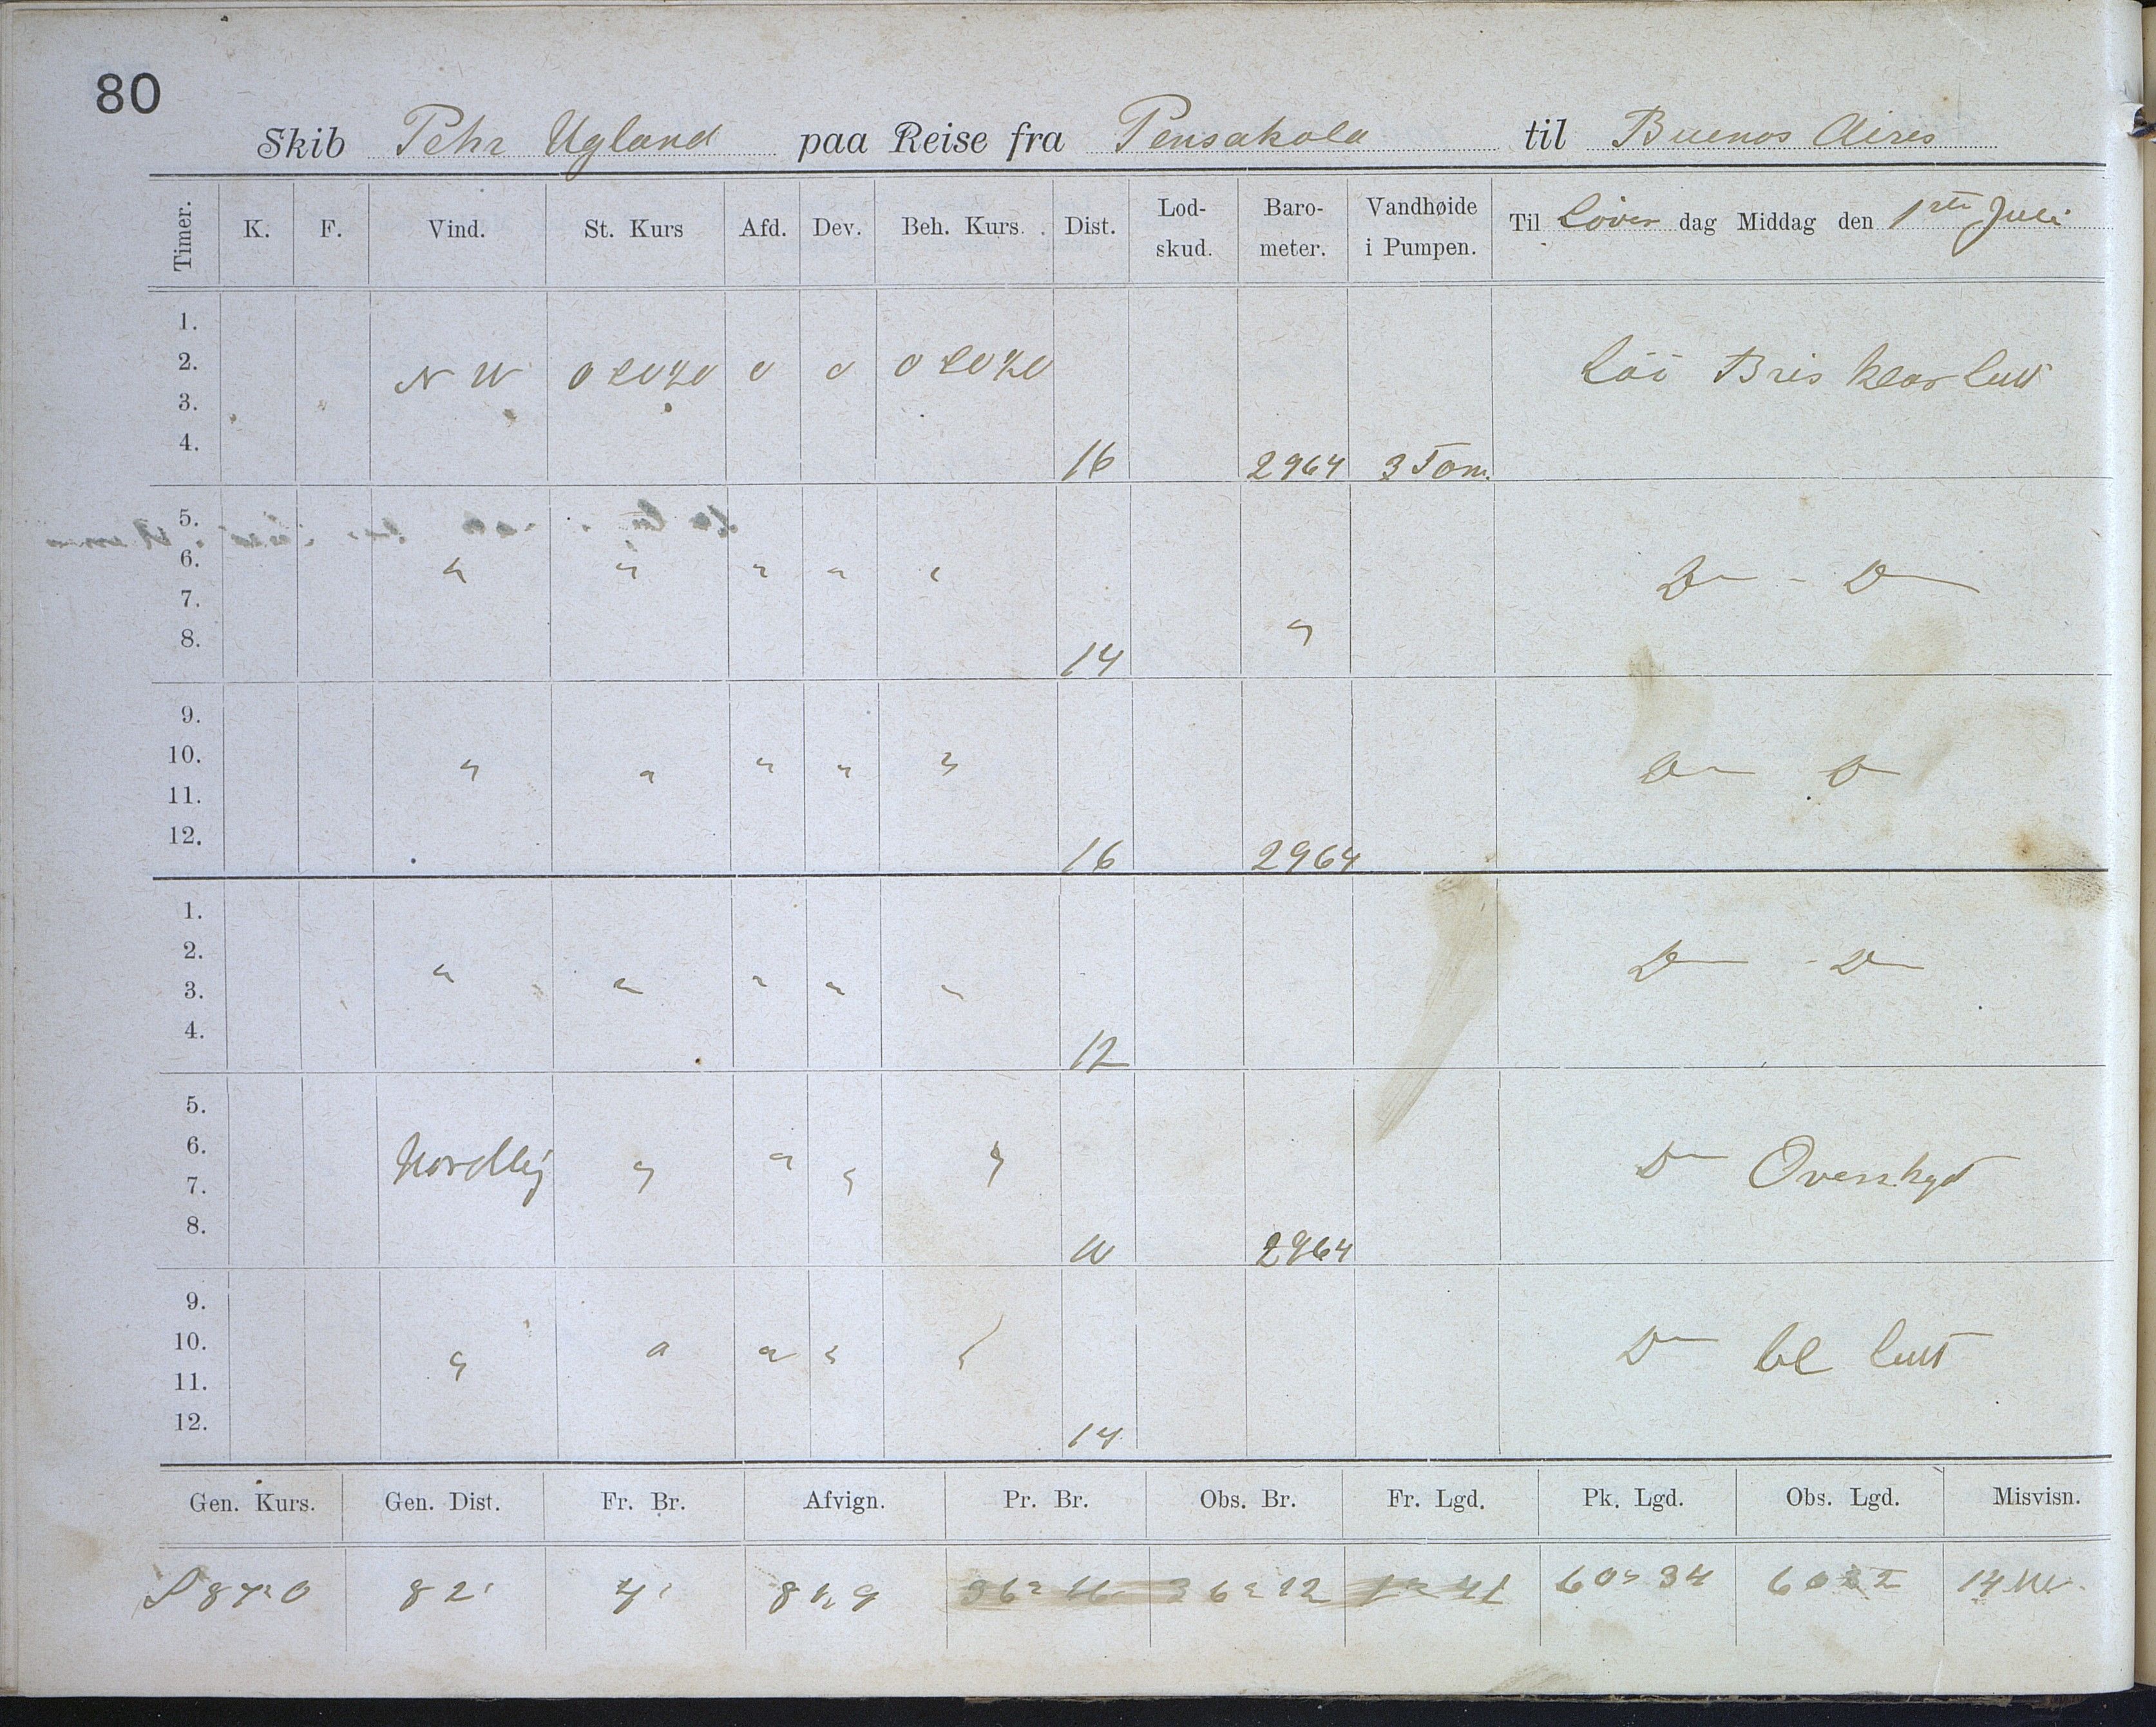 80
Skib Pehr Ugland paa Reise fra Pensakola til Buenos Aires
Timer. K. F. Vind. St. Kurs Afd. Dev. Beh. Kurs. Dist. Lod-skud. Baro-meter. Vandhøide i Pumpen. Til Löver dag Middag den 1ste Juli
1.
2. NW 0 0 Bris klar luft
3.
4. 16 2964 3 Tom.
5.
6. " " " " " D — D
7.
8. 14 "
9.
10. " " " " " D — D
11.
12. 16 2964
1.
2. " " " " " D — D
3.
4. 12
5.
6. Nordlig " " " " D — Overskyd
7.
8. 10 2964
9.
10. " " " " " D — luft
11.
12. 14
Gen. Kurs. Gen. Dist. Fr. Br. Afvign. Pr. Br. Obs. Br. Fr. Lgd. Pk. Lgd. Obs. Lgd. Misvisn.
S 87 O 82' 4' 36 16 36 12 1 41 60 34 14 W